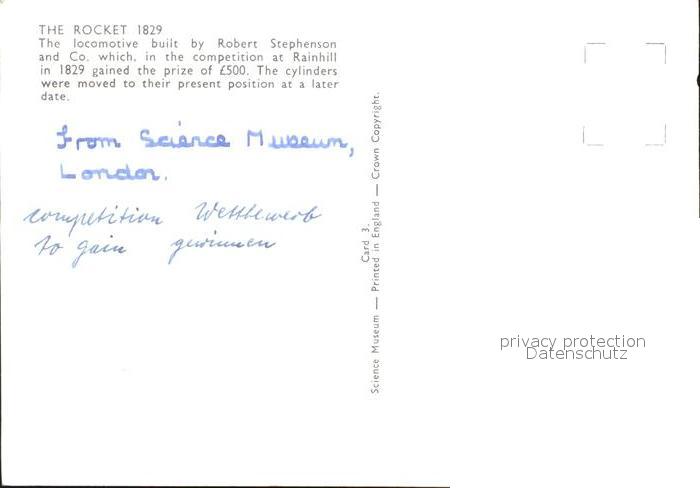 THE ROCKET 1829
The locomotive built by Robert Stephenson
and Co. which, in the competition at Rainhill
in 1829 gained the prize of £500. The cylinders
were moved to their present position at a later
date.
From Science Museum,
London.
competition Wettbewerb
to gain gewinnen
Card 3.
Science Museum — Printed in England — Crown Copyright.
privacy protection
Datenschutz